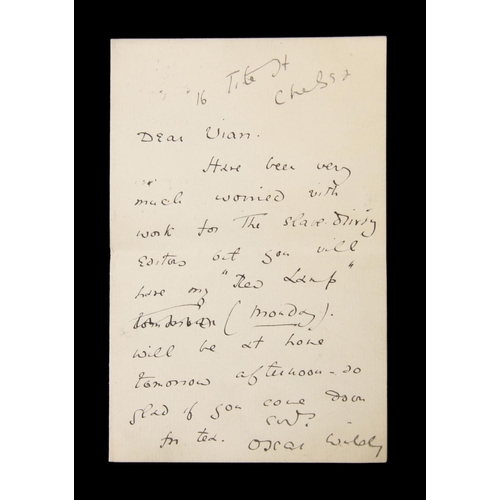 16 Tite St
Chelsea
Dear Vian.
Have been very
much worried with
work for the slave-driving
Editors but you will
have my "Red Lamp"
(Monday).
will be at home
tomorrow afternoon - so
glad if you come down
for tea.
Oscar Wilde